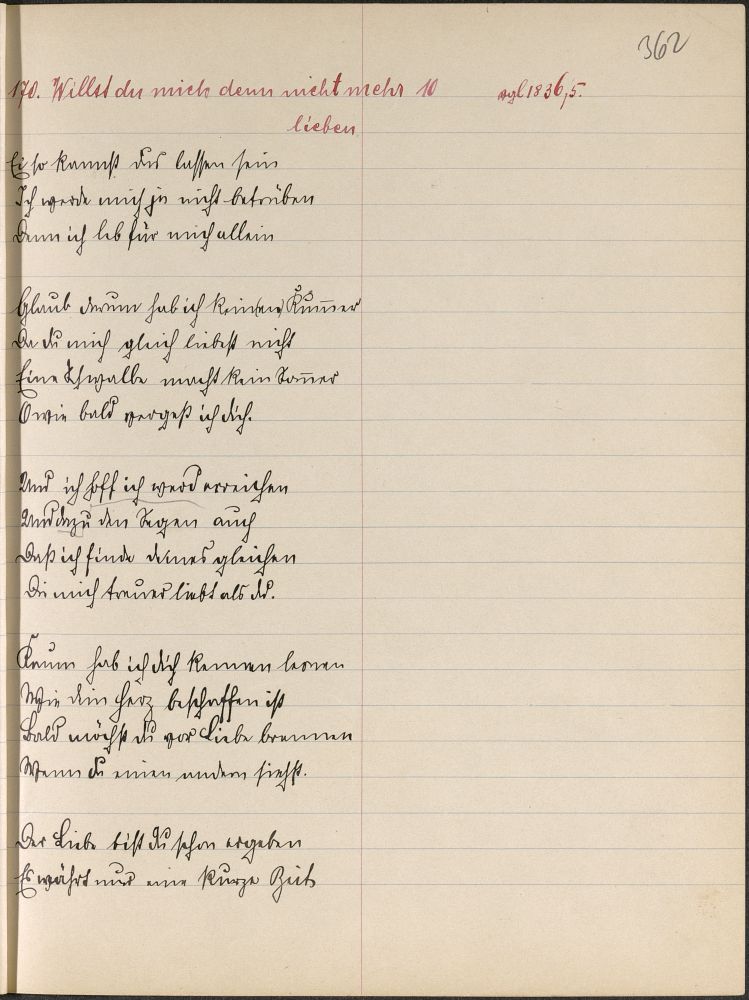 362
170. Willst du mich denn nicht mehr 10 vgl 1836,5.
lieben
Ei so kannst du's lassen sein
Ich werde mich ja nicht betrüben
Denn ich leb für mich allein
Glaub darum hab ich kein(en) Kum̄er
Da du mich gleich liebest nicht
Eine Schwalbe macht kein Som̄er
O wie bald vergeß ich dich.
Und ich hoff ich werd erreichen
Und dazu den Segen auch
Daß ich finde deinesgleichen
Die mich treuer liebt als du.
Kaum hab ich dich kennen lernen
Wie dein Herz beschaffen ist
Bald möchst du vor Liebe brennen
Wenn du einen andern siehst.
Der Liebe bist du schon ergeben
Es währt nur eine kurze Zeit